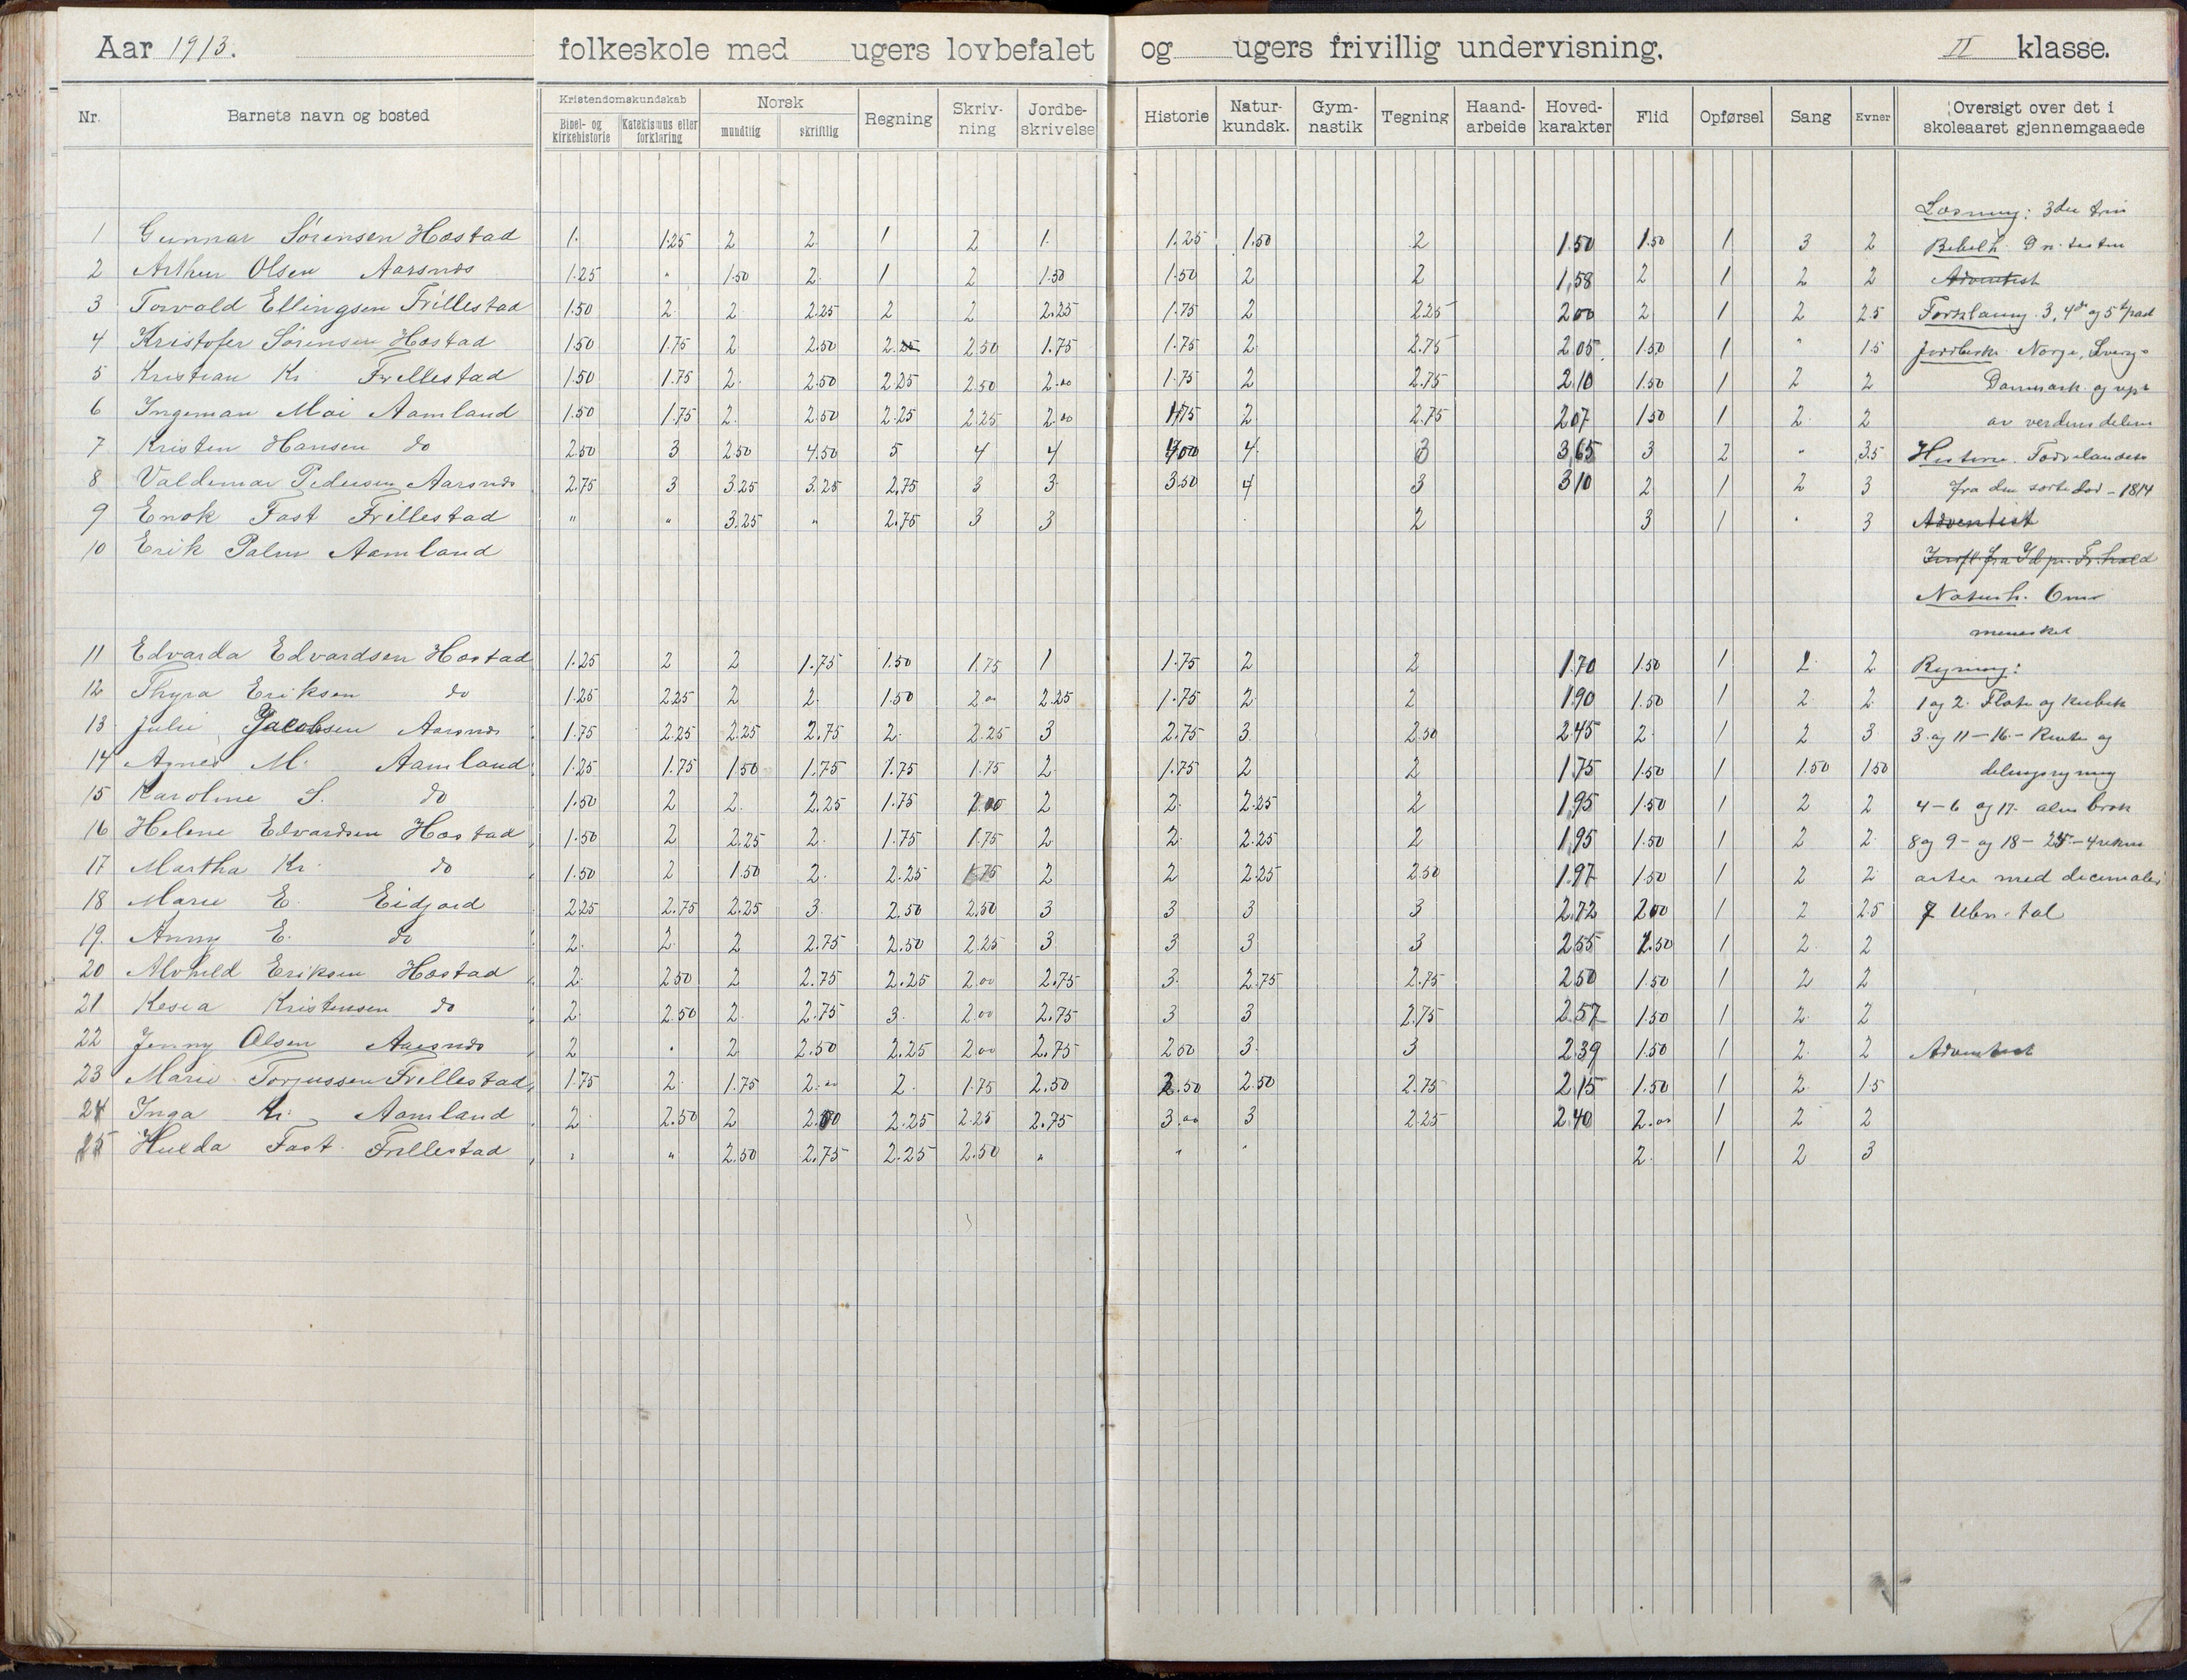 Aar 1913. folkeskole med ugers lovbefalet og ugers frivillig undervisning. II klasse.
Nr. Barnets navn og bosted Kristendomskundskab Bibel- og kirkehistorie Katekismus eller forklaring Norsk mundtlig skriftlig Regning Skriv-ning Jordbe-skrivelse Historie Natur-kundsk. Gym-nastik Tegning Haand-arbeide Hoved-karakter Flid Opførsel Sang Evner Oversigt over det i skoleaaret gjennemgaaede
Læsning: 3die trin
1 Gunnar Sörensen Hæstad 1. 1.25 2 2 1 2 1. 1.25 1.50 2 1.50 1.50 1 3 2 Bibelh.
2 Arthur Olsen Aarsnes 1.25 " 1.50 2. 1 2 1.50 1.50 2 2 1,58 2 1 2 2 Adventist
3 Torvald Ellingsen Frillestad 1.50 2 2 2.25 2 2 2.25 1.75 2 2.25 2.00 2 1 2 2.5 Forklaring 3, 4de og 5te part
4 Kristofer Sörensen Hæstad 1.50 1.75 2 2.50 2.25 2.50 1.75 1.75 2 2.75 2.05 1.50 1 " 1.5 Jordbesk. Norge, Sverge
5 Kristian Kr. Frillestad 1.50 1.75 2. 2.50 2.25 2.50 2.00 1.75 2 2.75 2.10 1.50 1 2 2 Danmark og
6 Ingeman Moi Aamland 1.50 1.75 2. 2.50 2.25 2.25 2.00 1.75 2 2.75 2.07 1.50 1 2 2 av verdensdelene
7 Kristen Hansen do 2.50 3 2.50 4.50 5 4 4 4.00 4 3 3,65 3 2 " 3.5 Historie. Fædrelandets
8 Valdemar Pedersen Aarsnes 2.75 3 3.25 3.25 2.75 3 3. 3.50 4 3 3.10 2 1 2 3 fra den sorte död - 1814
9 Enok Fast Frillestad " " 3.25 " 2.75 3 3 2 3 1 " 3 Adventist
10 Erik Palm Aamland
Naturh. Om
mennesket
11 Edvarda Edvardsen Hæstad 1.25 2 2 1.75 1.50 1.75 1 1.75 2 2 1.70 1.50 1 2 2 Regning:
12 Thyra Eriksen do 1.25 2.25 2 2 1.50 2.00 2.25 1.75 2 2 1.90 1.50 1 2 2 1 og 2. Flate og kubik
13 Julie Jacobsen Aarsnes 1.75 2.25 2.25 2.75 2. 2.25 3 2.75 3 2.50 2.45 2 1 2 3 3. og 11-16 - Rente og
14 Agnes M. Aamland 1.25 1.75 1.50 1.75 1.75 1.75 2 1.75 2 2 1.75 1.50 1 1.50 1.50 delingsregning
15 Karoline S. do 1.50 2 2. 2.25 1.75 2.00 2 2. 2.25 2 1.95 1.50 1 2 2 4-6 og 17. alm brøk
16 Helene Edvardsen Hæstad 1.50 2 2.25 2. 1.75 1.75 2 2. 2.25 2 1.95 1.50 1 2 2 8 og 9 - og 18 - 25 - 4 regne
17 Martha Kr. do 1.50 2 1.50 2. 2.25 1.75 2 2 2.25 2.50 1.97 1.50 1 2 2 arter med decimaler
18 Marie E. Eidjord 2.25 2.75 2.25 3. 2.50 2.50 3 3 3 3 2.72 2.00 1 2 2.5 7 Ubn. tal
19. Anny E. do 2. 2. 2 2.75 2.50 2.25 3. 3 3 3 2.55 2.50 1 2. 2
20 Alvhild Eriksen Hæstad 2. 2.50 2 2.75 2.25 2.00 2.75 3. 2.75 2.75 2.50 1.50 1 2 2
21 Kesia Kristensen do 2. 2.50 2. 2.75 3. 2.00 2.75 3 3 2.75 2.57 1.50 1 2. 2
22 Jenny Olsen Aarsnes 2 " 2 2.50 2.25 2.00 2.75 2.00 3. 3 2.39 1.50 1 2. 2 Adventist
23 Marie Torjussen Frillestad 1.75 2. 1.75 2.00 2. 1.75 2.50 2.50 2.50 2.75 2.15 1.50 1 2. 1.5
24 Inga Kr. Aamland 2 2.50 2 2.00 2.25 2.25 2.75 3.00 3 2.25 2.40 2.00 1 2 2
25 Hulda Fast Frillestad " " 2.50 2.75 2.25 2.50 " " " 2. 1 2 3